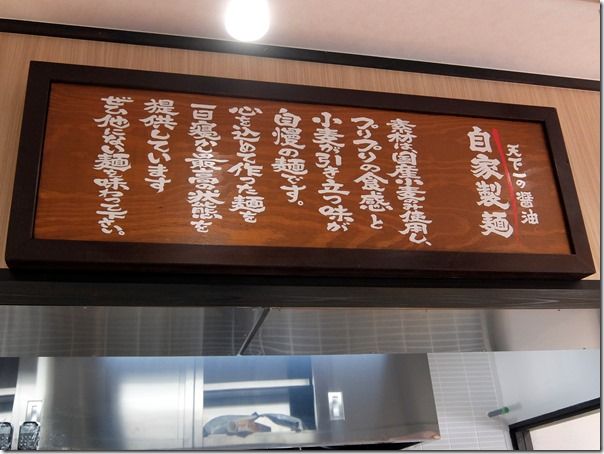 天下一の醤油
自家製麺
素材は国産小麦のみ使用し、
プリプリの食感と
小麦が引き立つ味が
自慢の麺です。
心を込めて作った麺を
一日寝かせ最高の状態を
提供しています
ぜひ他にない麺を味わって下さい。